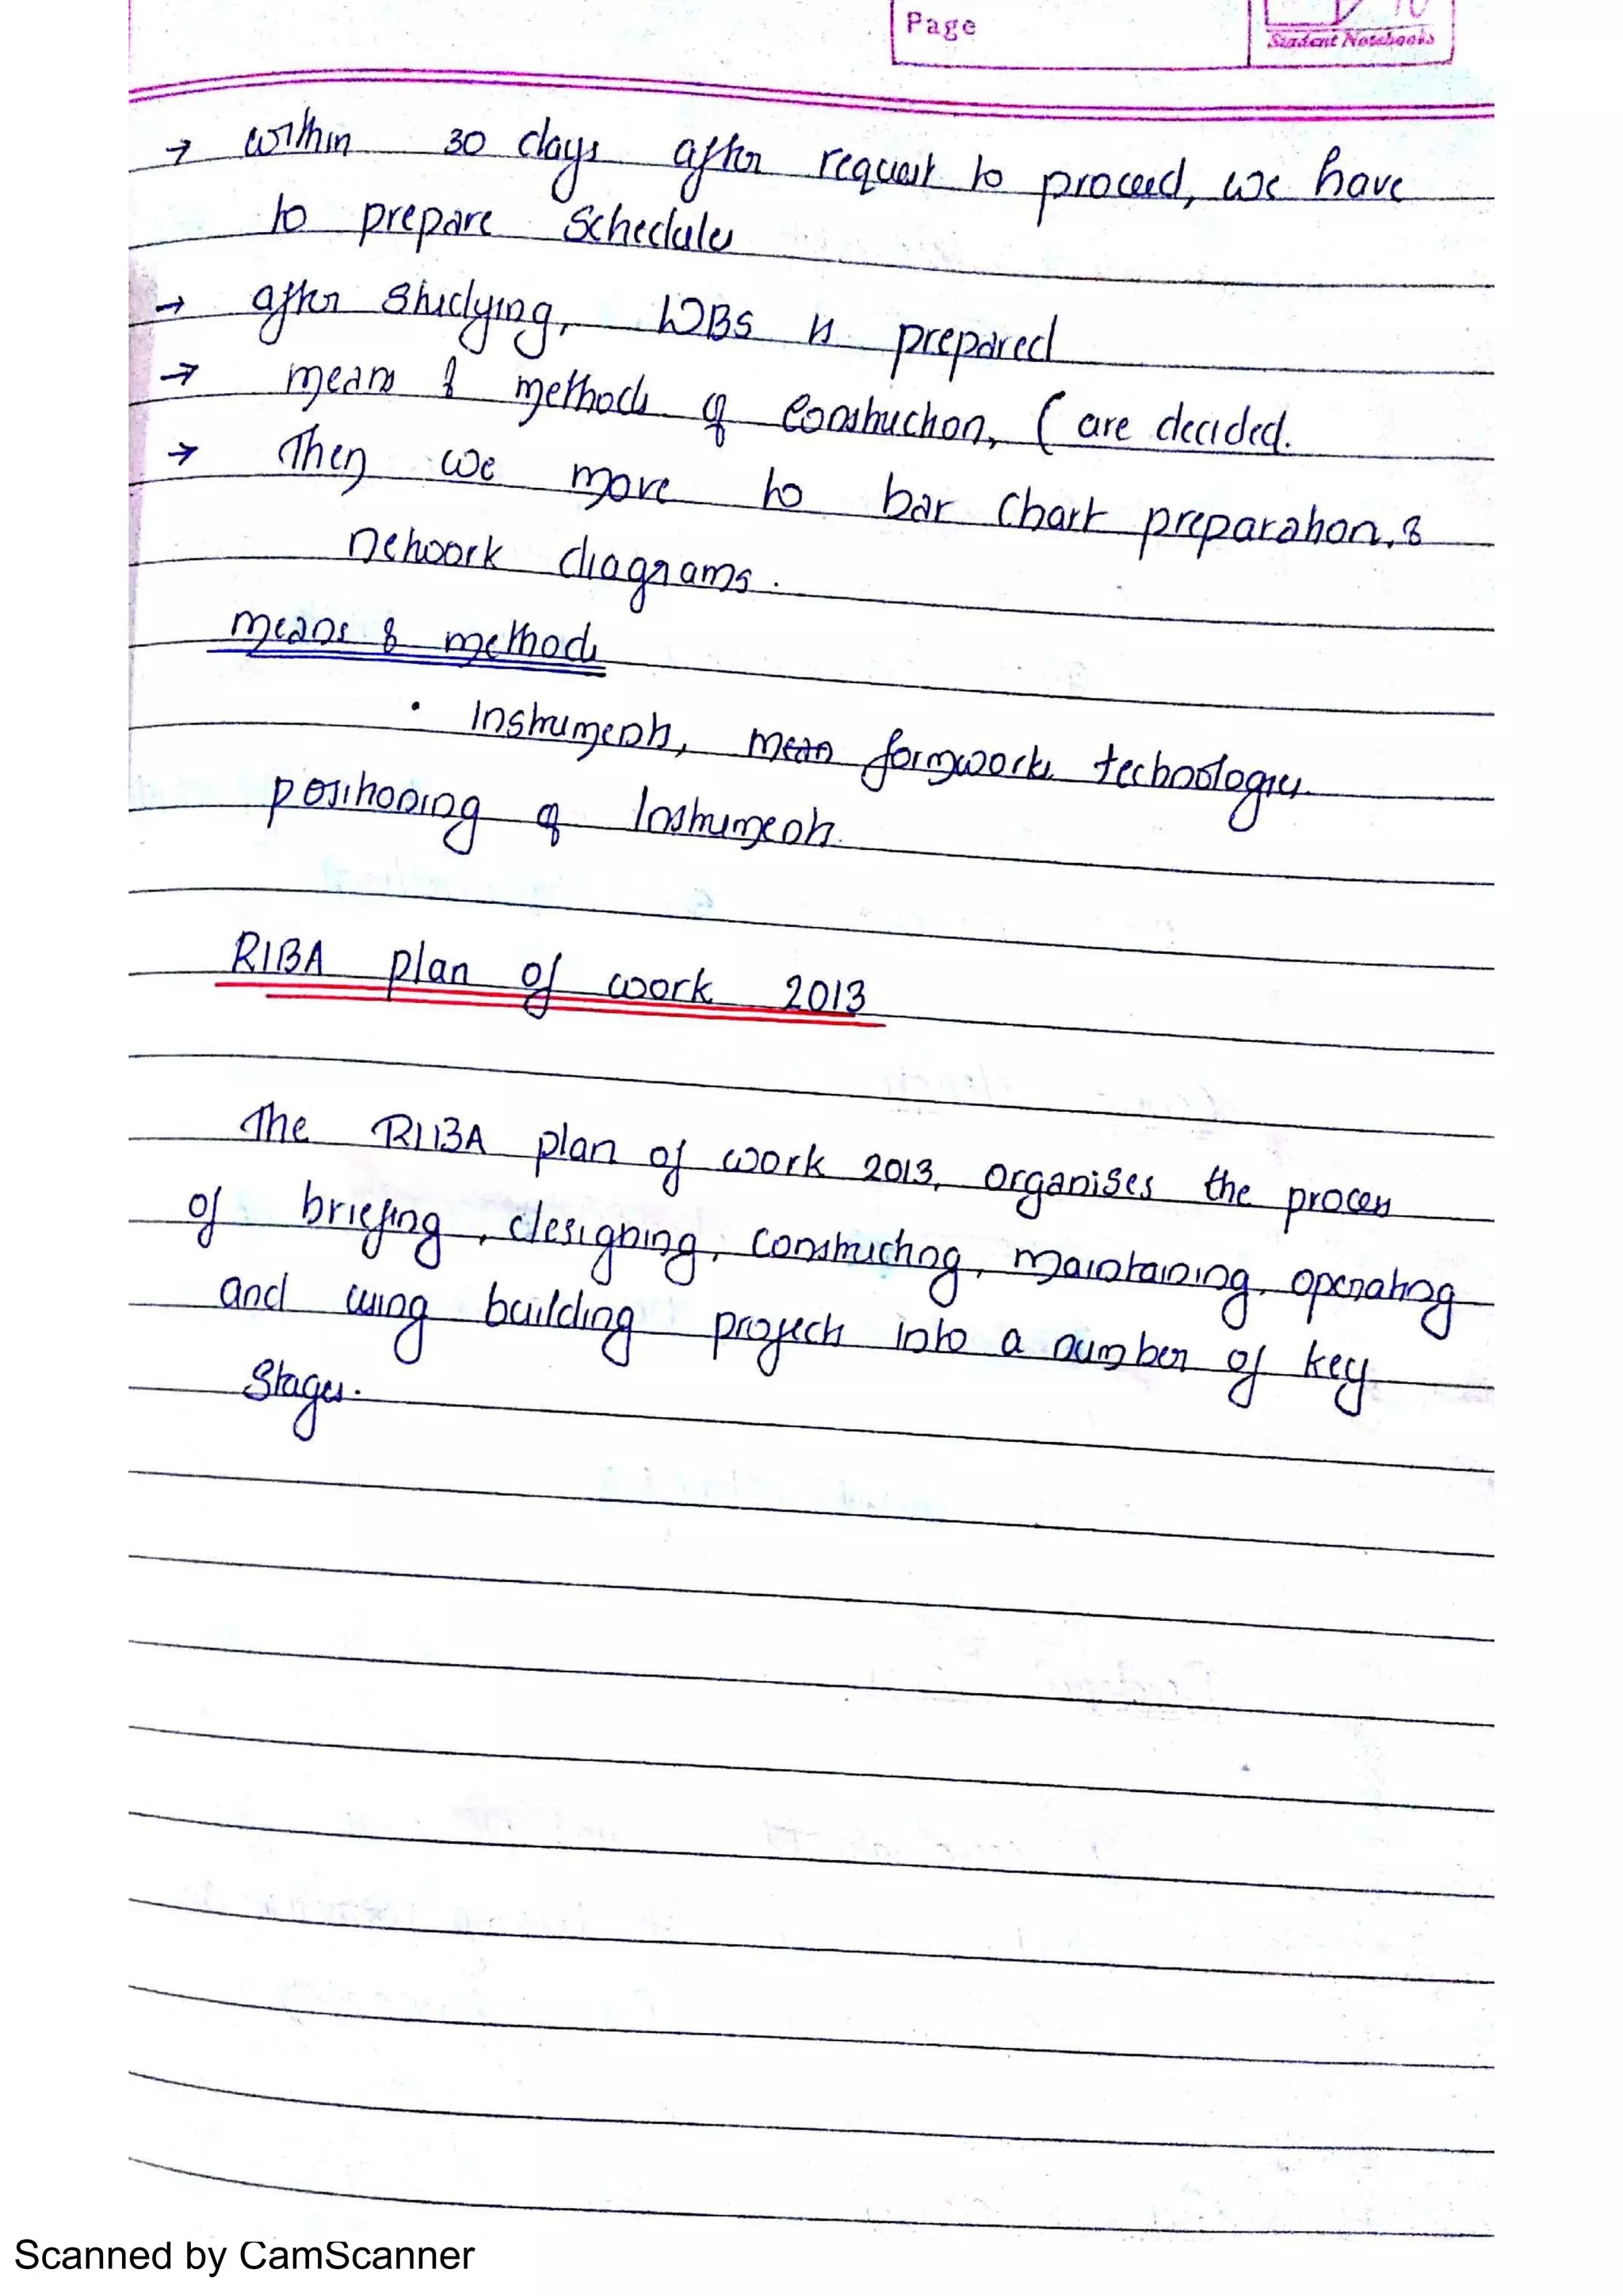 Page
Student Notebooks
→ within 30 days after request to proceed, we have
to prepare Schedules
→ after studying, WBS is prepared
→ means & methods of construction, ( are decided.
→ Then we move to bar chart preparation, &
network diagrams.
means & methods
• Instruments, mean formworks technologies
positioning of Instruments.
RIBA plan of work 2013
The RIBA plan of work 2013, organises the process
of briefing, designing, constructing, maintaining, operating
and using building projects into a number of key
stages.
Scanned by CamScanner